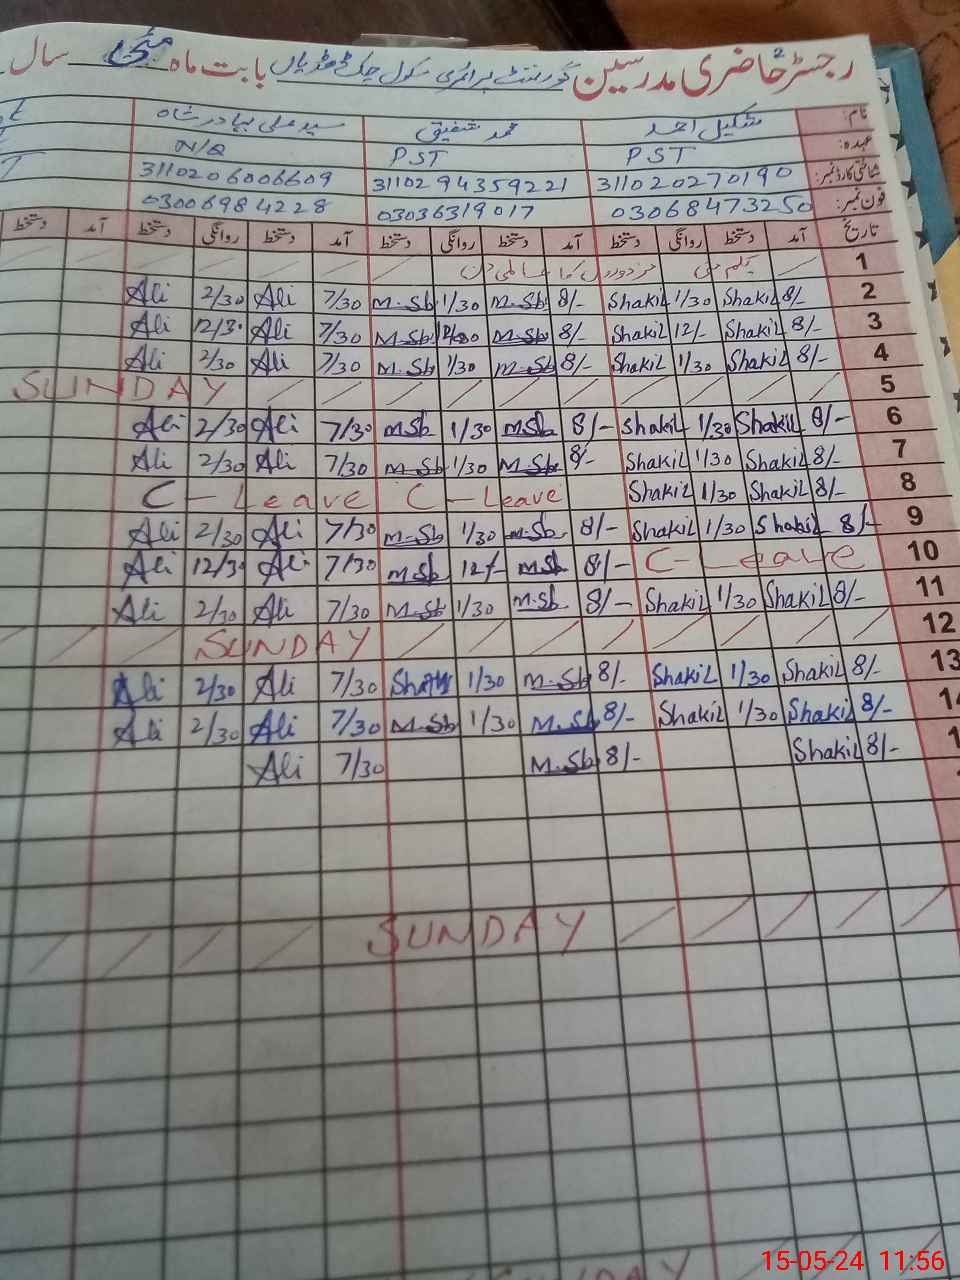 رجسٹر حاضری مدرسین گورنمنٹ پرائمری سکول چک بابت ماہ مئی سال
نام: شکیل احمد محمد شفیق سید علی بہادر شاہ
عہدہ: PST PST N/Q
شناختی کارڈ نمبر: 311020270190 3110294359221 3110206006609
فون نمبر: 03068473250 03036319017 03006984228
تاریخ آمد دستخط روانگی دستخط آمد دستخط روانگی دستخط آمد دستخط روانگی دستخط آمد دستخط
1 یکم مئی مزدوروں کا عالمی دن
2 8/- Shakil 1/30 Shakil 8/- M.Sb 1/30 M.Sb 7/30 Ali 2/30 Ali
3 8/- Shakil 12/- Shakil 8/- M.Sb M.Sb 7/30 Ali 12/30 Ali
4 8/- Shakil 1/30 Shakil 8/- M.Sb 1/30 M.Sb 7/30 Ali 2/30 Ali
5 SUNDAY
6 8/- Shakil 1/30 Shakil 8/- M.Sb 1/30 M.Sb 7/30 Ali 2/30 Ali
7 8/- Shakil 1/30 Shakil 8/- M.Sb 1/30 M.Sb 7/30 Ali 2/30 Ali
8 8/- Shakil 1/30 Shakil C - Leave C - Leave
9 8/- Shakil 1/30 Shakil 8/- M.Sb 1/30 M.Sb 7/30 Ali 2/30 Ali
10 C - Leave 8/- M.Sb 12/- M.Sb 7/30 Ali 12/30 Ali
11 8/- Shakil 1/30 Shakil 8/- M.Sb 1/30 M.Sb 7/30 Ali 2/30 Ali
12 SUNDAY
13 8/- Shakil 1/30 Shakil 8/- M.Sb 1/30 7/30 Ali 2/30 Ali
14 8/- Shakil 1/30 Shakil 8/- M.Sb 1/30 M.Sb 7/30 Ali 2/30 Ali
1 8/- Shakil 8/- M.Sb 7/30 Ali
SUNDAY
SUNDAY
15-05-24 11:56